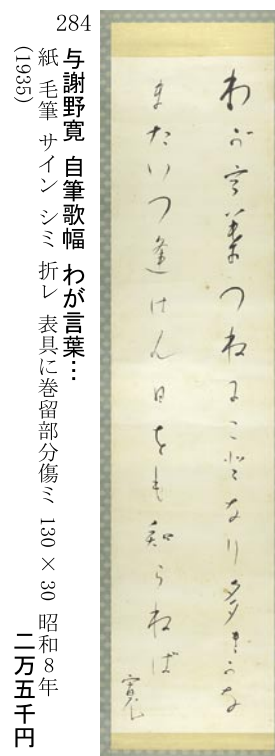 284
与謝野寛 自筆歌幅 わが言葉…
紙 毛筆 サイン シミ 折レ 表具に巻留部分傷ミ 130×30 昭和8年
(1935)
二万五千円
わが言葉つねにことなり多きかな
またいつ逢はん日をも知らねば
寛